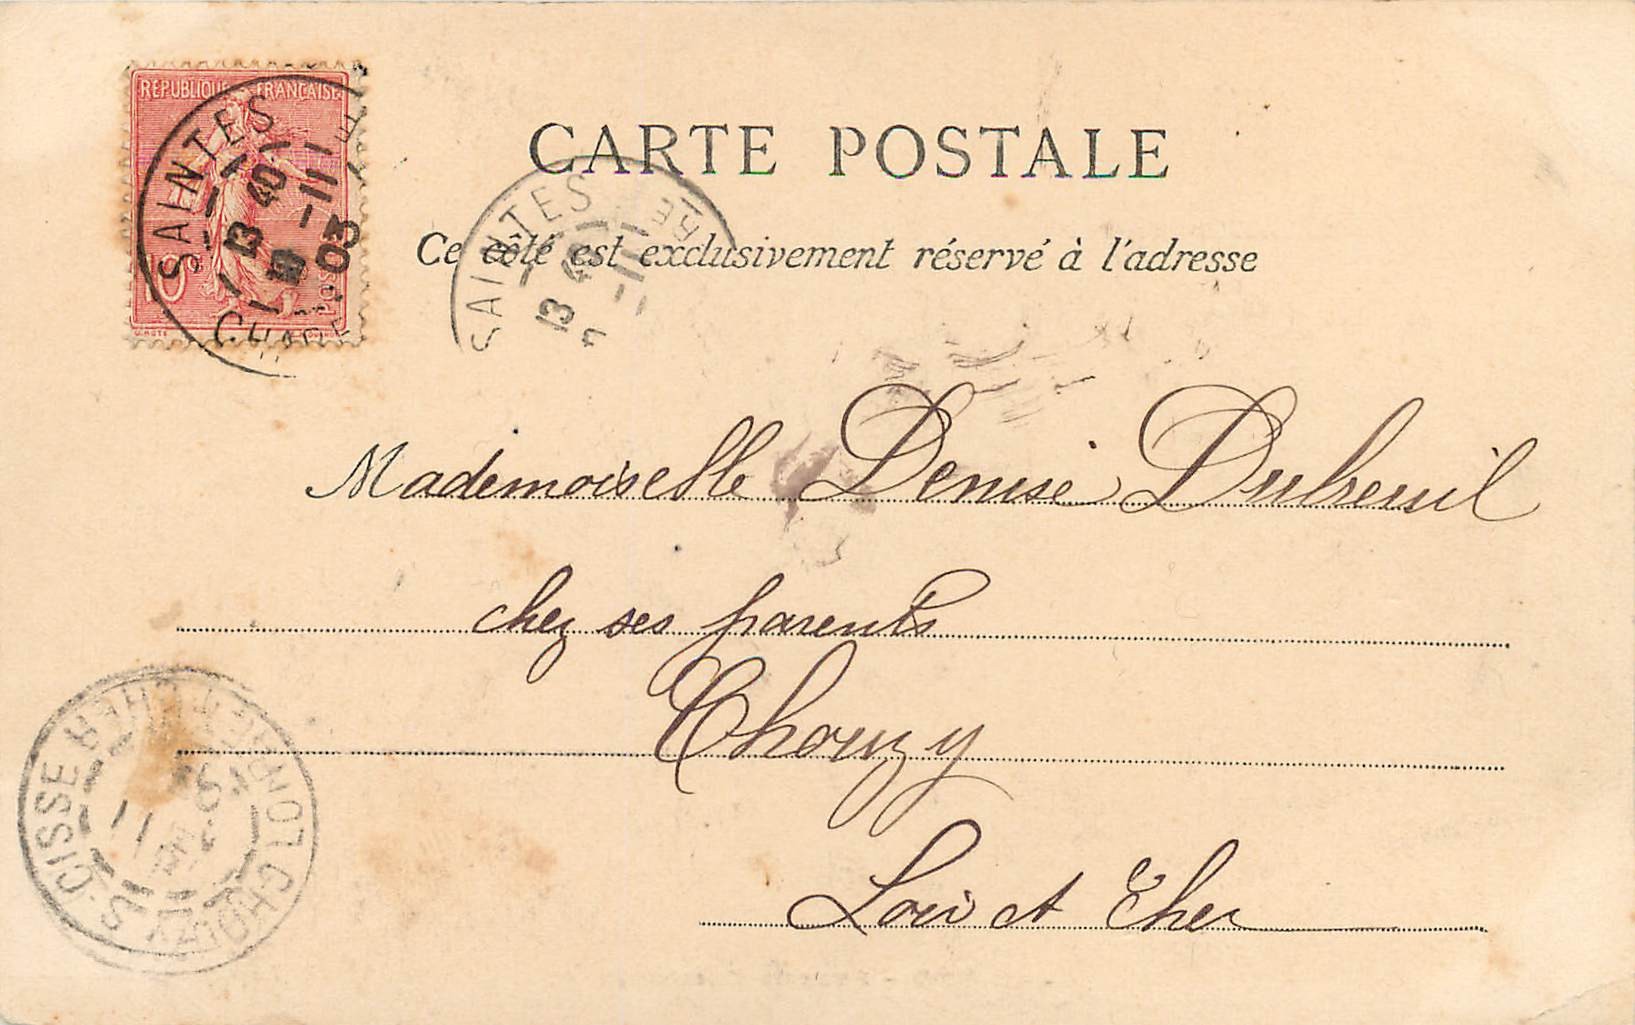 RÉPUBLIQUE FRANÇAISE
10c
POSTES
SAINTES
13 40
-11
03
CARTE POSTALE
SAINTES
13 40
-11
Ce côté est exclusivement réservé à l'adresse
Mademoiselle Denise Dubreuil
chez ses parents
Chouzy
Loir et Cher
CHOUZY S. CISSE
LOIR ET CHER
11